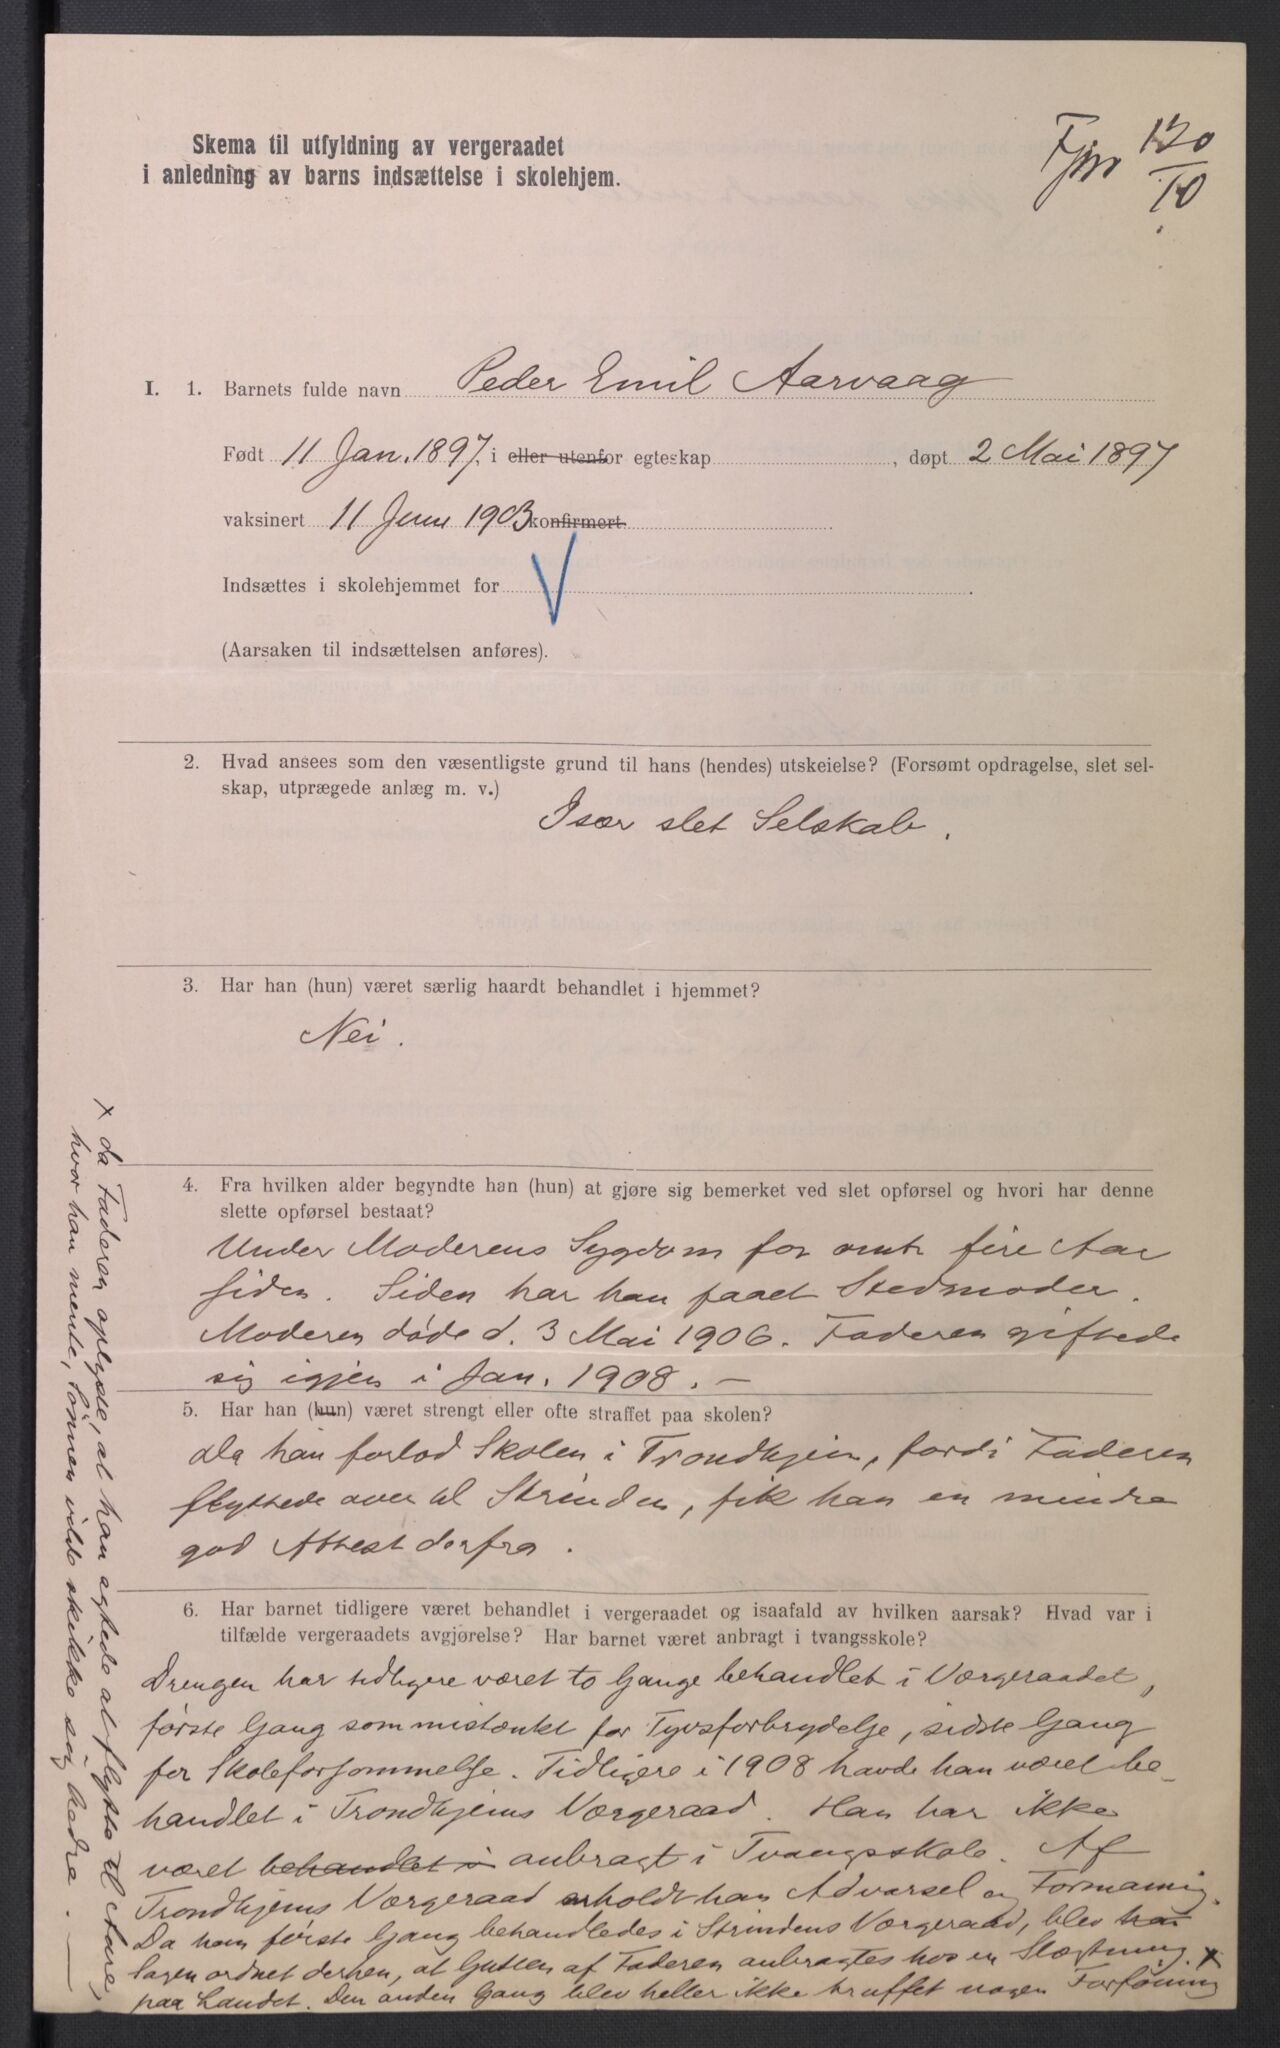 Skema til utfyldning av vergeraadet
i anledning av barns indsættelse i skolehjem.
120
10
I. 1. Barnets fulde navn Peder Emil Aarvaag
Født 11 Jan. 1897, i eller utenfor egteskap , døpt 2 Mai 1897
vaksinert 11 Juni 1903 konfirmert
Indsættes i skolehjemmet for
(Aarsaken til indsættelsen anføres).
2. Hvad ansees som den væsentligste grund til hans (hendes) utskeielse? (Forsømt opdragelse, slet sel-
skap, utprægede anlæg m. v.)
Især slet Selskab.
3. Har han (hun) været særlig haardt behandlet i hjemmet?
Nei.
4. Fra hvilken alder begyndte han (hun) at gjøre sig bemerket ved slet opførsel og hvori har denne
slette opførsel bestaat?
Under Moderens Sygdom for omtr fire Aar
siden. Siden har han faaet Stedmoder.
Moderen døde d. 3 Mai 1906. Faderen giftede
sig igjen i Jan. 1908. –
5. Har han (hun) været strengt eller ofte straffet paa skolen?
Da han forlod Skolen i Trondhjem, fordi Faderen
flyttede over til Strinden, fik han en mindre
god Attest derfra.
6. Har barnet tidligere været behandlet i vergeraadet og isaafald av hvilken aarsak? Hvad var i
tilfælde vergeraadets avgjørelse? Har barnet været anbragt i tvangsskole?
Drengen har tidligere været to Gange behandlet i Værgeraadet,
første Gang som mistænkt for Tyvsforbrydelse, sidste Gang
for Skoleforsømmelse. Tidligere i 1908 havde han været be-
handlet i Trondhjems Værgeraad. Han har ikke
været behandlet i anbragt i Tvangsskole. Af
Trondhjems Værgeraad erholdt han Advarsel og Formaning.
Da han første Gang behandledes i Strindens Værgeraad, blev
Sagen ordnet derhen, at Gutten af Faderen anbragtes hos en Slægtning x
paa Landet. Den anden Gang blev heller ikke truffet nogen Forføining
x da Faderen oplyste, at han agtede at flytte til Aure,
hvor han mente, Sønnen vilde skikke sig bedre. –